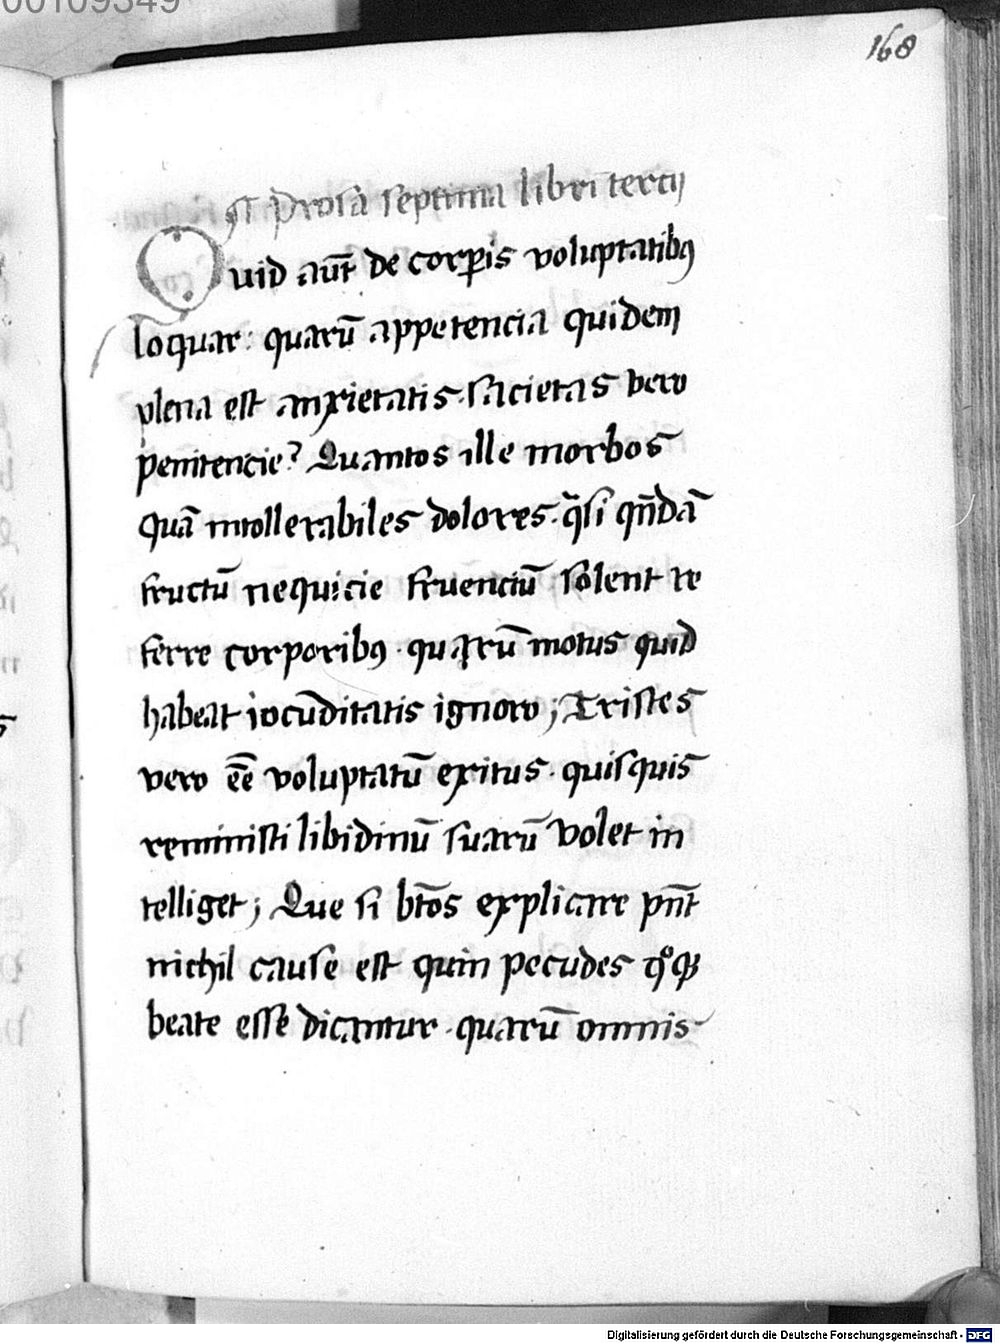 00109349
168
Prosa septima libri tercij
Quid aut̄ de corꝑis voluptatibꝯ
loquar: quarū appetencia quidem
plena est anxietatis. sacietas vero
penitencie? Quantos ille morbos
Quā intollerabiles dolores. q̄si qn̄dā
fructū nequicie fruenciū solent re
ferre corporibꝯ. quarū motus quid
habeat iocūditatis ignoro; Tristes
vero eē̄ voluptatū exitus. quisquis
reminisci libidinū suarū volet in
telliget; Que si btōs explicare pn̄t
nichil cause est quin pecudes qͦꝗ
beate esse dicantur. quarū omnis
Digitalisierung gefördert durch die Deutsche Forschungsgemeinschaft - DFG